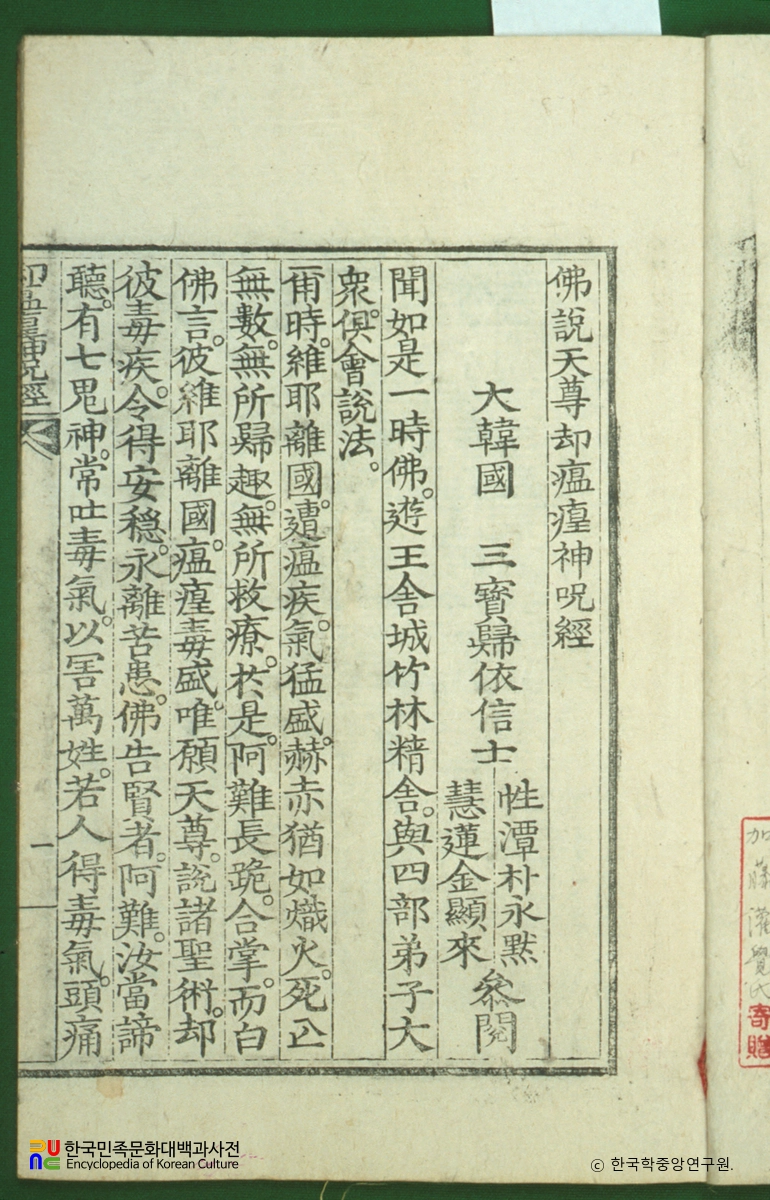 佛說天尊却瘟㾮神呪經
大韓國 三寶歸依信士 性潭朴永默 慧蓮金顯來 叅閱
聞如是一時佛。遊王舍城竹林精舍。與四部弟子大
衆。俱會說法。
甭時。維耶離國。遭瘟疾。氣猛盛。赫赤猶如熾火。死亾
無數。無所歸趣。無所救療。於是。阿難長跪。合掌。而白
佛言。彼維耶離國。瘟㾮毒盛。唯願天尊。說諸聖術。却
彼毒疾。令得安穩。永離苦患。佛告賢者。阿難。汝當諦
聽。有七鬼神。常吐毒氣。以害萬姓。若人得毒氣。頭痛
却瘟㾮神呪經 一
加藤灌覺氏寄贈
한국민족문화대백과사전
Encyclopedia of Korean Culture
ⓒ 한국학중앙연구원.